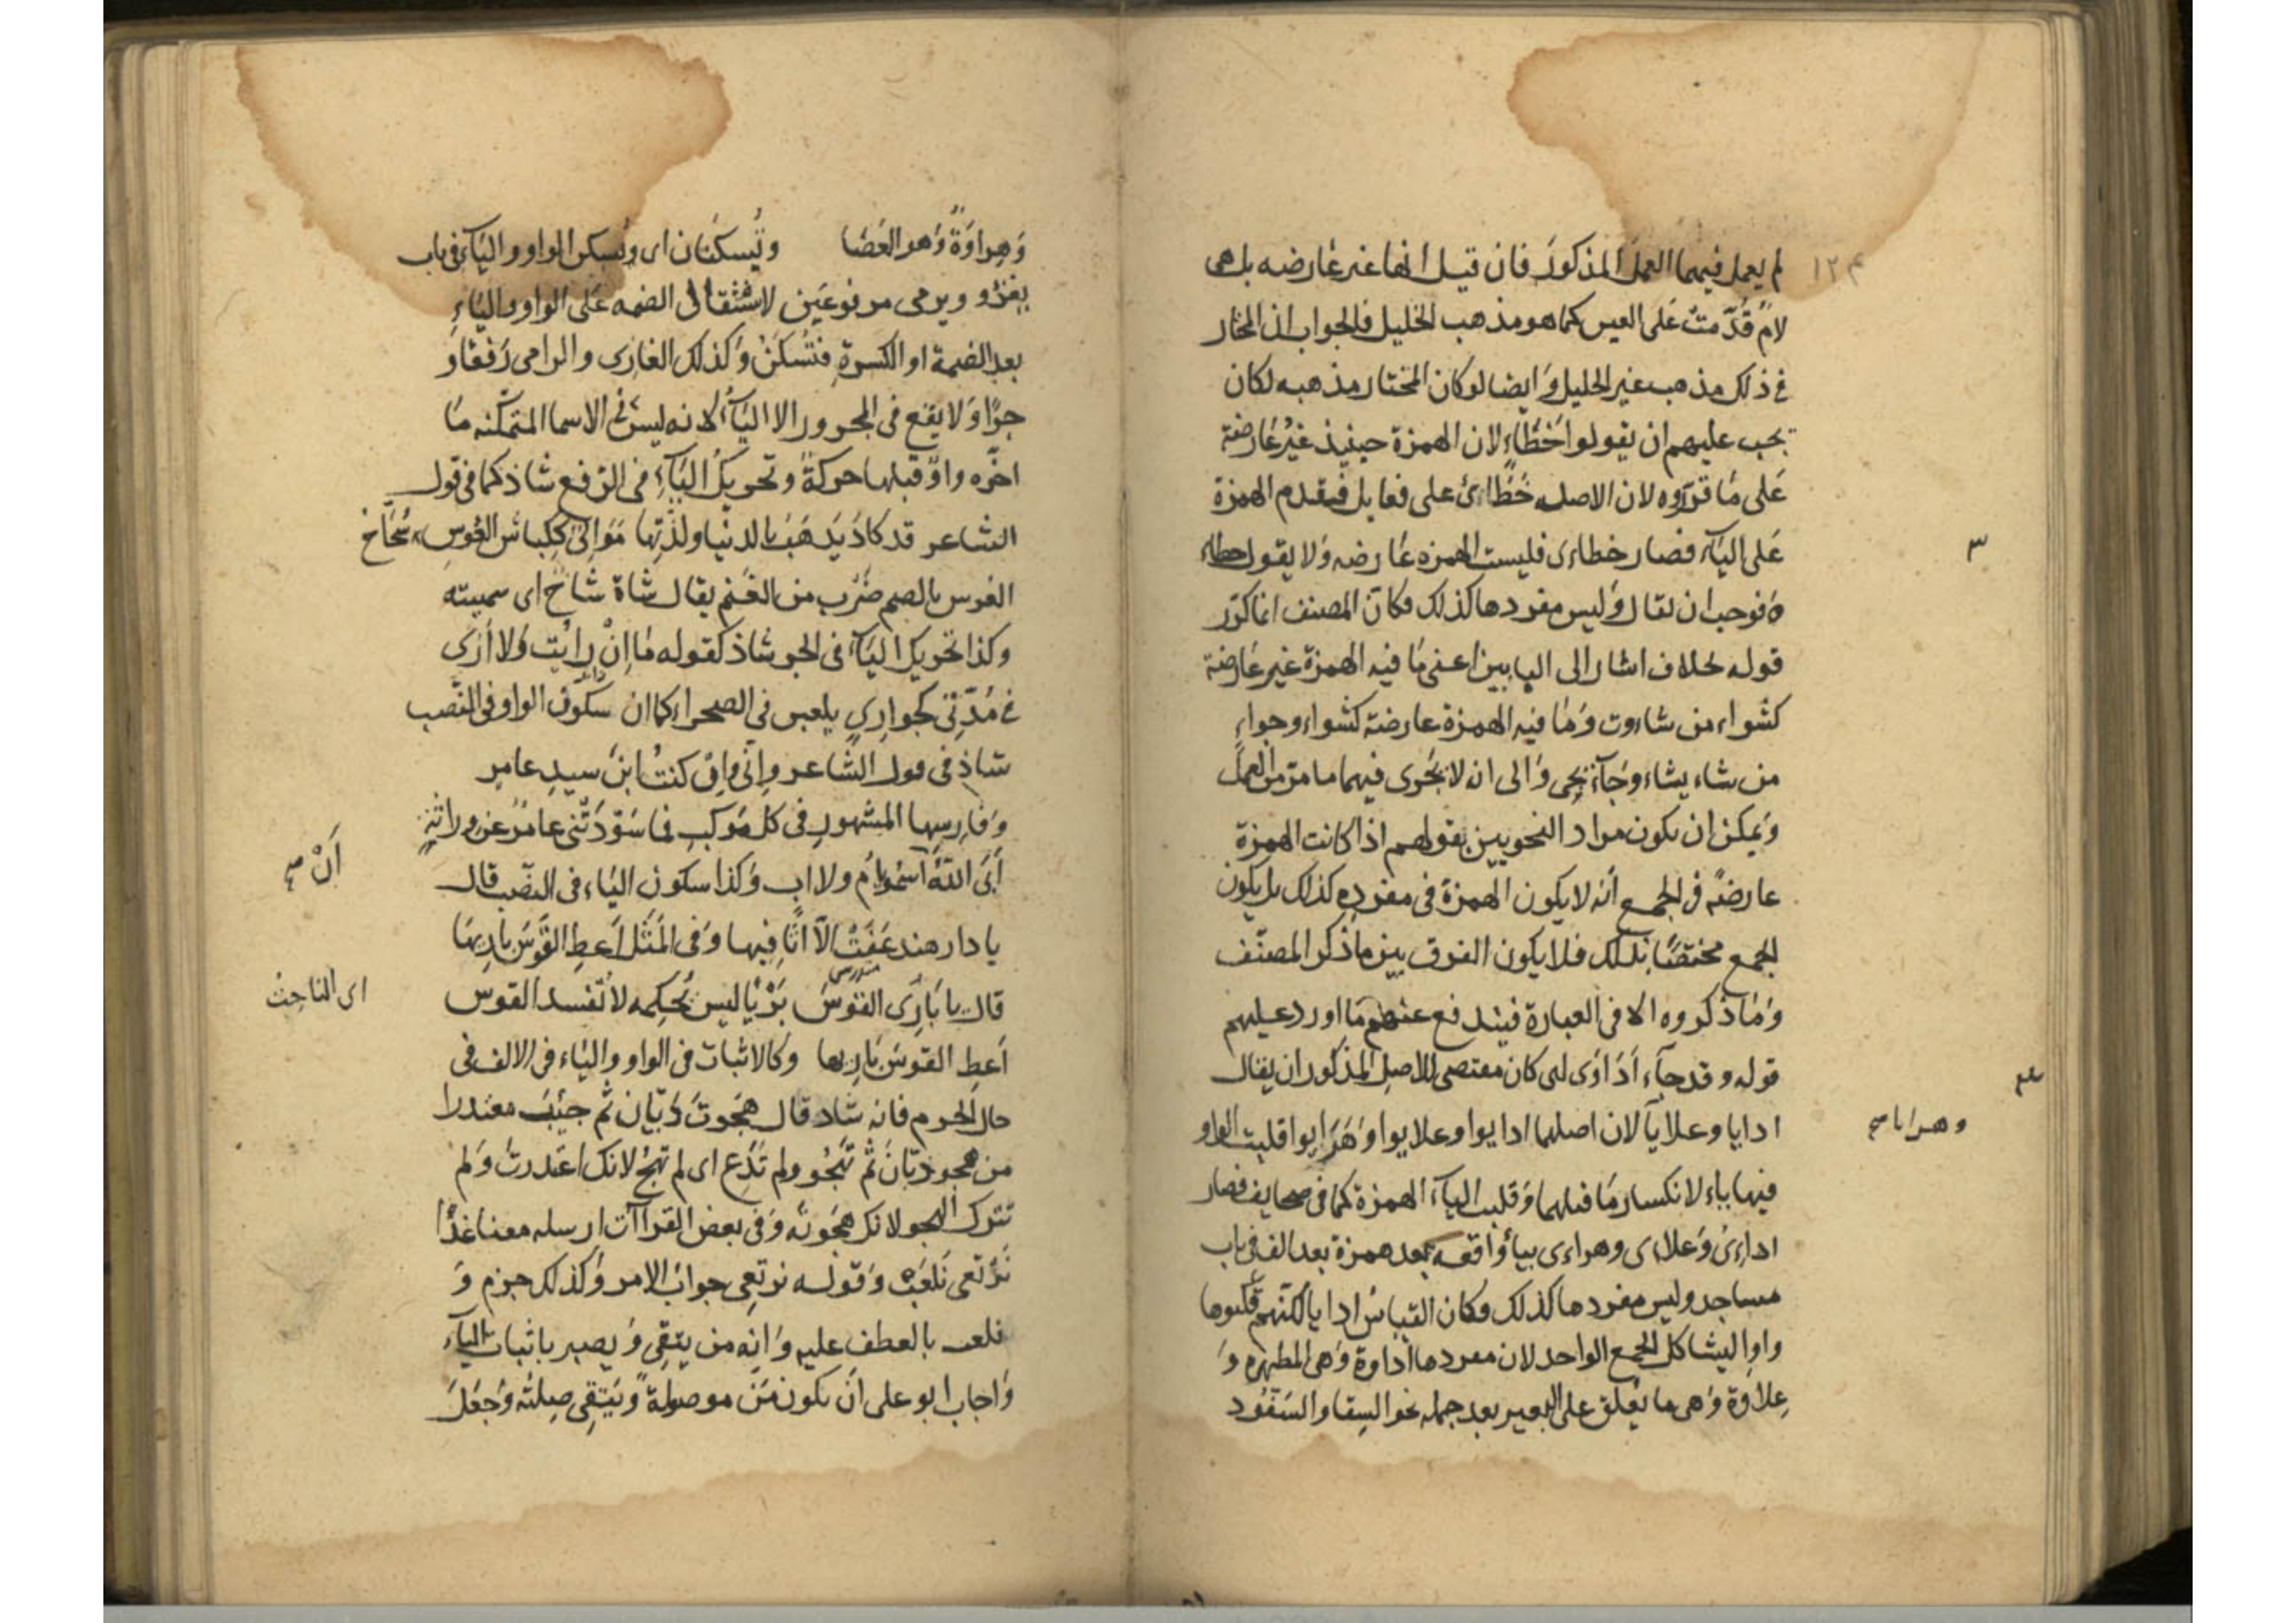 ١٢٤
لم يعمل فيهما العمل المذكور فان قيل انها غير عارضه بل هى
لامٌ قُدّمتْ عَلى العين كما هو مذهب الخليل فالجواب ان المختار
فى ذلك مذهب غير الخليل وَايضا لو كان المختار مذهبه لكان
يجب عليهم ان يقولوا خَطَاء لان الهمزة حينيذ غيرُ عَارضة
عَلى مَا قرّروه لان الاصل خَطَاائ على فعايل فيقدم الهمزة
عَلى اليَآء فصار خطاءى فليست الهمزه عَارضه وَلا يقول خطاء
٣
ه فوجب ان يقال وَليس مفردها كذلك فكانّ المصنف انما كرّر
قوله بخلاف اشار الى البابين اعنى مَا فيه الهمزة غير عَارضة
كشواء من شاءوت وَمَا فيه الهمزة عارضة كشواء وجواء
من شاء يشاء وَجَآءَ يجِى وَالى ان لا يَجُرى فيهما ما مرّ من العمل
وَيمكن ان يكون مراد النحويين بقولهم اذا كانت الهمزة
عارضةً فى الجمع أنه لا يكون الهمزة فى مفرده كذلك بل يكون
الجمع مختصًا بذلك فلا يكون الفرق بين ما ذكر المصنّف
وَمَا ذكروه الا فى العبارة فيندفع عنهم مَا اورد عليهم
قوله وقد جآء اَدَاوَى لى كان مقتضى الاصل المذكور ان يقال
ادايا وعلايآ لان اصلهما ادايوا وعلايوا وَهَرَايوا قلبت الواو
وهرايا صح
فيها ياء لانكسار مَا قبلها وَقلبت اليآء الهمزة كما فى صحايف فصار
اداءِىُ وَعلاءى وهراءى بيا وَاقعه بعد همزة بعد الف فى باب
مساجد وليس مفردها كذلك وكان القياسُ ادايا لكنّهم قلبوها
واوا ليشاكل الجمع الواحد لان مفردها اداوة وَهى المطهره وَ
عِلاوة وَهى ما يعُلق على البعير بعد حمله نحو السِقا والسَفّود
وَهِراوَةٌ وَهو العَصَا وتُسكنان اى وتُسكن الواو واليَآء فى باب
يغزو ويرمى مرفوعَين لاستثقال الضمه عَلى الواو واليَاءِ
بعد الضمة او الكسرة فتُسْكَنُ وَكذلك الغازى والرامى رَفعًا وَ
جرًّا وَلا يقع فى المجرور الا اليَآءُ لانه ليس فى الاسما المتمكّنه مَا
اخّره واوٌ قبلها حركةً وتحريكُ اليَآء فى الرّفع شاذ كما فى قول
الشاعر قد كادَ يَذهَبُ بالدنيا ولذّتِها مَوَالِىٌ ككِباشِ العُوسِ سُحَّاحُ
العوس بالضم ضَرب من الغَنم يقال شاة سَاحّ اى سمينه
وكذا تحريك اليَآء فى الجر شاذ كقوله مَا اِنْ رايْت وَلا اَرَى
فى مُدّتِى كجوارِىٍ يلعبن فى الصحراء كما ان سُكون الواو فى النّصب
شاذ فى قول الشّاعر واِنّى واِنْ كنتُ ابنَ سيدِ عامرٍ
وَفارسِها المشهورِ فى كل مَوكبِ فما سَوّدَتْنى عامرٌ عن وراثةٍ
اَبَى اللهُ اَسْموا باُمّ ولا اب وَكذا سكون اليَاء فى النصب قال
اَنْ صح
يا دار هند عَفَتْ الاّ اثَافِيها وَفى المَثَل اَعطِ القَوسَ بَارِيهَا
قال يا بَارِىَ القَوسَ بَرْيًا ليس يُحكِمه لا تفسد القوس
اى الناحِت
اَعطِ القَوسَ بَارِيها وكالاثبات فى الواو واليَاء فى الالف فى
حال الجزم فانه شاد قال هَجَوتَ زبّان ثم جئتَ معتذرا
من هجو زبّانَ ثم تهجُو ولم تدَع اى لم تهجُ لانك اعتذرت وَلم
تترك الهجو لانك هجَوته وَفى بعض القراآت ارسله معنا غدًا
نَرْتعى نَلعَبْ وَقوله نرتعِى جوابُ الامر وَكذلك جزم وَ
نلعب بالعطف عليه وَانه من يتقِى وَيصبر باثبات اليَآء
وَاجاب ابو على اَن يكون مَنْ موصولةً وَيَتقِى صِلتَه وَجعَلَ